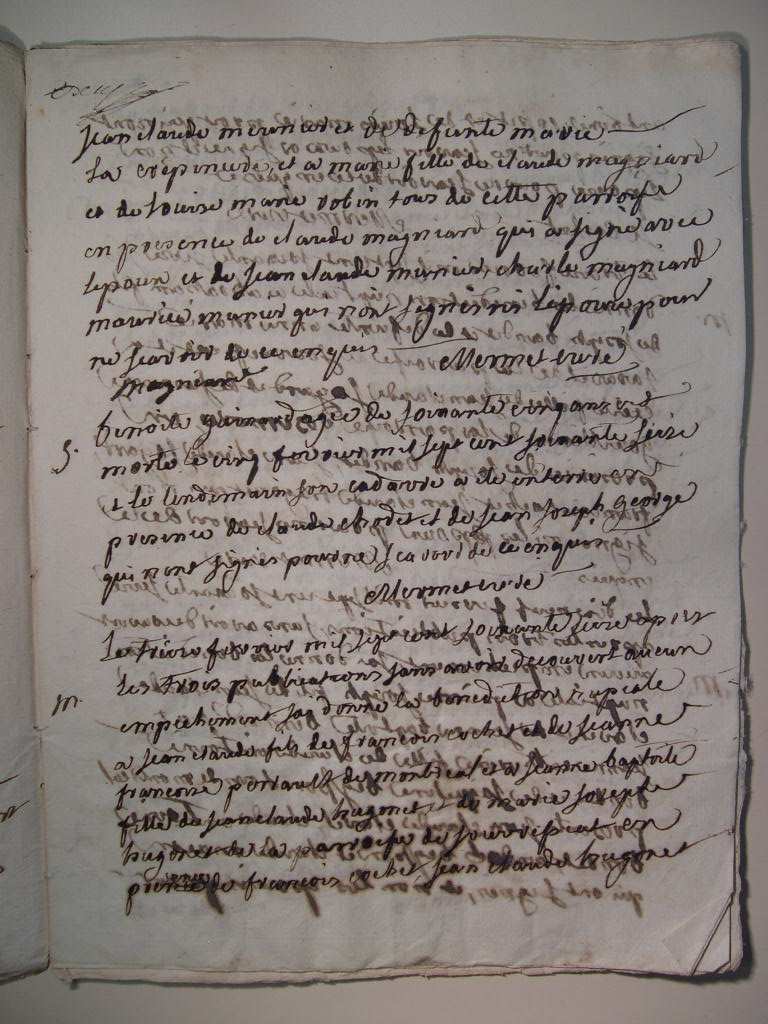 Jean claude meunier et de defunte marie
La crepincude, et a marie fille de claude magniard
et de Louise marie robin tous de cette parroisse
en presence de claude magniard qui a signé avec
lepoux et de Jean claude meunier, charle magniard
maurice maner qui nont signés ni lepouse pour
ne scavoir de ce enquis Mermet curé
magniard
S.
benoite guinord agée de soixante cinq ans est
morte le cinq fevrier mil sept cent soixante seize
et le lendemain son cadavre a ete enterre en
presence de claude chodet et de Jean Joseph George
qui nont signés pour ne scavoir de ce enquis
Mermet curé
M.
Le fevrier mil sept cent soixante seize apres
les trois publications sans avoir decouvert aucun
empechement jai donné la bénédiction nupciale
a Jean claude fils de francois cochet et de Jeanne
francoise perrault de montreal et a Jeanne baptiste
fille de Jean claude hugonet et de marie Josepte
hugonet de la parroisse de en
presence de francois cochet Jean claude hugonet